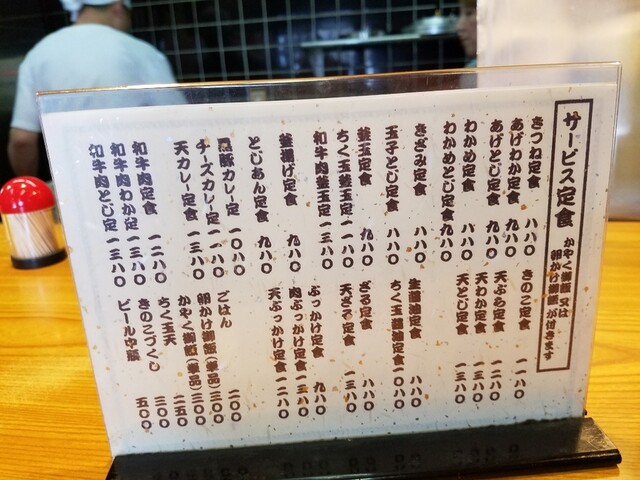 サービス定食
かやく御飯又は
卵かけ御飯が付きます
きつね定食 八八〇
あげわか定食 九八〇
あげとじ定食 九八〇
わかめ定食 八八〇
わかめとじ定食 九八〇
きざみ定食 八八〇
玉子とじ定食 八八〇
釜玉定食 九八〇
ちく玉釜玉定 一一八〇
和牛肉釜玉定 一三八〇
釜揚げ定食 九八〇
とじあん定食 九八〇
黒豚カレー定 一〇八〇
チーズカレー定 一一八〇
天カレー定食 一三八〇
和牛肉定食 一二八〇
和牛肉わか定 一三八〇
和牛肉とじ定 一三八〇
きのこ定食 一一八〇
天ぷら定食 一二八〇
天わか定食 一三八〇
天とじ定食 一三八〇
生醤油定食 八八〇
ちく玉醤油定食 一〇八〇
ざる定食 八八〇
天ざる定食 一三八〇
ぶっかけ定食 九八〇
肉ぶっかけ定食 一三八〇
天ぶっかけ定食 一二八〇
ごはん 二〇〇
卵かけ御飯(単品) 三〇〇
かやく御飯(単品) 二五〇
ちく玉天 三〇〇
きのこづくし
ビール中瓶 五〇〇